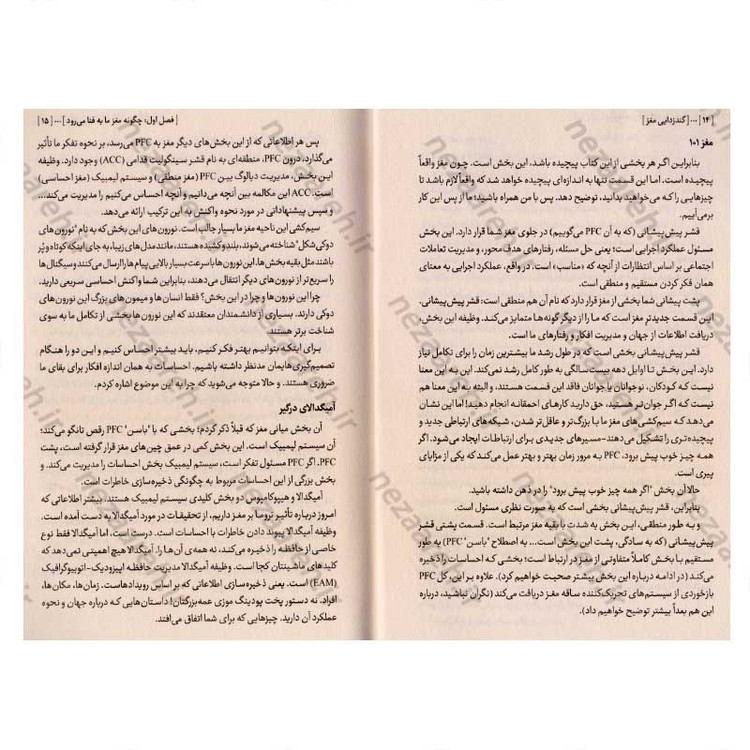 [ ۱۴ ]... [ گندزدایی مغز ]
مغز ۱۰۱
بنابراین اگر هر بخشی از این کتاب پیچیده باشد، این بخش است. چون مغز واقعاً
پیچیده است. اما این قسمت تنها به اندازه‌ای پیچیده خواهد شد که واقعاً لازم باشد تا
چیزهایی را که می‌خواهید بدانید، توضیح دهد. پس با من همراه باشید؛ ما از پس این کار
برمی‌آییم.
قشر پیش‌پیشانی (که به آن PFC می‌گوییم) در جلوی مغز شما قرار دارد. این بخش
مسئول عملکرد اجرایی است؛ یعنی حل مسئله، رفتارهای هدف محور، و مدیریت تعاملات
اجتماعی بر اساس انتظارات از آنچه که «مناسب» است. در واقع، عملکرد اجرایی به معنای
همان فکر کردن مستقیم و منطقی است.
پشت پیشانی شما بخشی از مغز قرار دارد که نام آن هم منطقی است: قشر پیش‌پیشانی.
این قسمت جدیدتر مغز است که ما را از دیگر گونه‌ها متمایز می‌کند. وظیفه این بخش،
دریافت اطلاعات از جهان و مدیریت افکار و رفتارهای ما است.
قشر پیش‌پیشانی بخشی است که در طول رشد ما بیشترین زمان را برای تکامل نیاز
دارد. این بخش تا اوایل دهه بیست‌سالگی به طور کامل رشد نمی‌کند. این به این معنا
نیست که کودکان، نوجوانان یا جوانان فاقد این قسمت هستند، و البته به این معنا هم
نیست که اگر جوان‌تر هستید، حق دارید کارهای احمقانه انجام دهید! اما این نشان
می‌دهد که سیم‌کشی‌های مغز ما با بزرگ‌تر و عاقل‌تر شدن، شبکه‌های ارتباطی جدید و
پیچیده‌تری را تشکیل می‌دهند-مسیرهای جدیدی برای ارتباطات ایجاد می‌شود. اگر
همه چیز خوب پیش برود، PFC به مرور زمان بهتر و بهتر عمل می‌کند که یکی از مزایای
پیری است.
حالا آن بخش "اگر همه چیز خوب پیش برود" را در ذهن داشته باشید.
بنابراین، قشر پیش‌پیشانی بخشی است که به صورت نظری مسئول است.
و به طور منطقی، این بخش به شدت با بقیه مغز مرتبط است. قسمت پشتی قشر
پیش‌پیشانی (که به سادگی، پشت این بخش است... به اصطلاح "باسن" PFC) به طور
مستقیم با بخش کاملاً متفاوتی از مغز در ارتباط است؛ بخشی که احساسات را ذخیره
می‌کند (در ادامه درباره این بخش بیشتر صحبت خواهیم کرد). علاوه بر این، کل PFC
بازخوردی از سیستم‌های تحریک‌کننده ساقه مغز دریافت می‌کند (نگران نباشید، درباره
این هم بعداً بیشتر توضیح خواهیم داد).
[ فصل اول: چگونه مغز ما به فنا می‌رود ]... [ ۱۵ ]
پس هر اطلاعاتی که از این بخش‌های دیگر مغز به PFC می‌رسد، بر نحوه تفکر ما تأثیر
می‌گذارد. درون PFC، منطقه‌ای به نام قشر سینگولیت قدامی (ACC) وجود دارد. وظیفه
این بخش، مدیریت دیالوگ بین PFC (مغز منطقی) و سیستم لیمبیک (مغز احساسی)
است. ACC این مکالمه بین آنچه می‌دانیم و آنچه احساس می‌کنیم را مدیریت می‌کند...
و سپس پیشنهاداتی در مورد نحوه واکنش به این ترکیب ارائه می‌دهد.
سیم‌کشی این ناحیه مغز ما بسیار جالب است. نورون‌های این بخش که به نام "نورون‌های
دوکی شکل" شناخته می‌شوند، بلند و کشیده هستند، مانند مدل‌های زیبا، به جای اینکه کوتاه و پُر
باشند مثل بقیه بخش‌ها. این نورون‌ها با سرعت بسیار بالایی پیام‌ها را ارسال می‌کنند و سیگنال‌ها
را سریع‌تر از نورون‌های دیگر انتقال می‌دهند، بنابراین شما واکنش احساسی سریعی دارید.
چرا این نورون‌ها و چرا در این بخش؟ فقط انسان‌ها و میمون‌های بزرگ این نورون‌های
دوکی دارند. بسیاری از دانشمندان معتقدند که این نورون‌ها بخشی از تکامل ما به سوی
شناخت برتر هستند.
برای اینکه بتوانیم بهتر فکر کنیم، باید بیشتر احساس کنیم و این دو را هنگام
تصمیم‌گیری‌هایمان مدنظر داشته باشیم. احساسات به همان اندازه افکار برای بقای ما
ضروری هستند. و حالا متوجه می‌شوید که چرا به این موضوع اشاره کردم.
آمیگدالای درگیر
آن بخش میانی مغز که قبلاً ذکر کردم؛ بخشی که با "باسن" PFC رقص تانگو می‌کند؛
آن سیستم لیمبیک است. این بخش کمی در عمق چین‌های مغز قرار گرفته است، پشت
PFC. اگر PFC مسئول تفکر است، سیستم لیمبیک بخش احساسات را مدیریت می‌کند. و
بخش بزرگی از این احساسات مربوط به چگونگی ذخیره‌سازی خاطرات است.
آمیگدالا و هیپوکامپوس دو بخش کلیدی سیستم لیمبیک هستند. بیشتر اطلاعاتی که
امروز درباره تأثیر تروما بر مغز داریم، از تحقیقات در مورد آمیگدالا به دست آمده است.
وظیفه آمیگدالا پیوند دادن خاطرات با احساسات است. درست است، اما آمیگدالا فقط نوع
خاصی از حافظه را ذخیره می‌کند، نه همه‌ی آن‌ها را. آمیگدالا هیچ اهمیتی نمی‌دهد که
کلیدهای ماشینتان کجا است. وظیفه آمیگدالا مدیریت حافظه اپیزودیک-اتوبیوگرافیک
(EAM) است. یعنی ذخیره‌سازی اطلاعاتی که بر اساس رویدادهاست. زمان‌ها، مکان‌ها،
افراد. نه دستور پخت پودینگ موزی عمه‌بزرگتان! داستان‌هایی که درباره جهان و نحوه
عملکرد آن دارید. چیزهایی که برای شما اتفاق می‌افتد.
nezafeh.ir